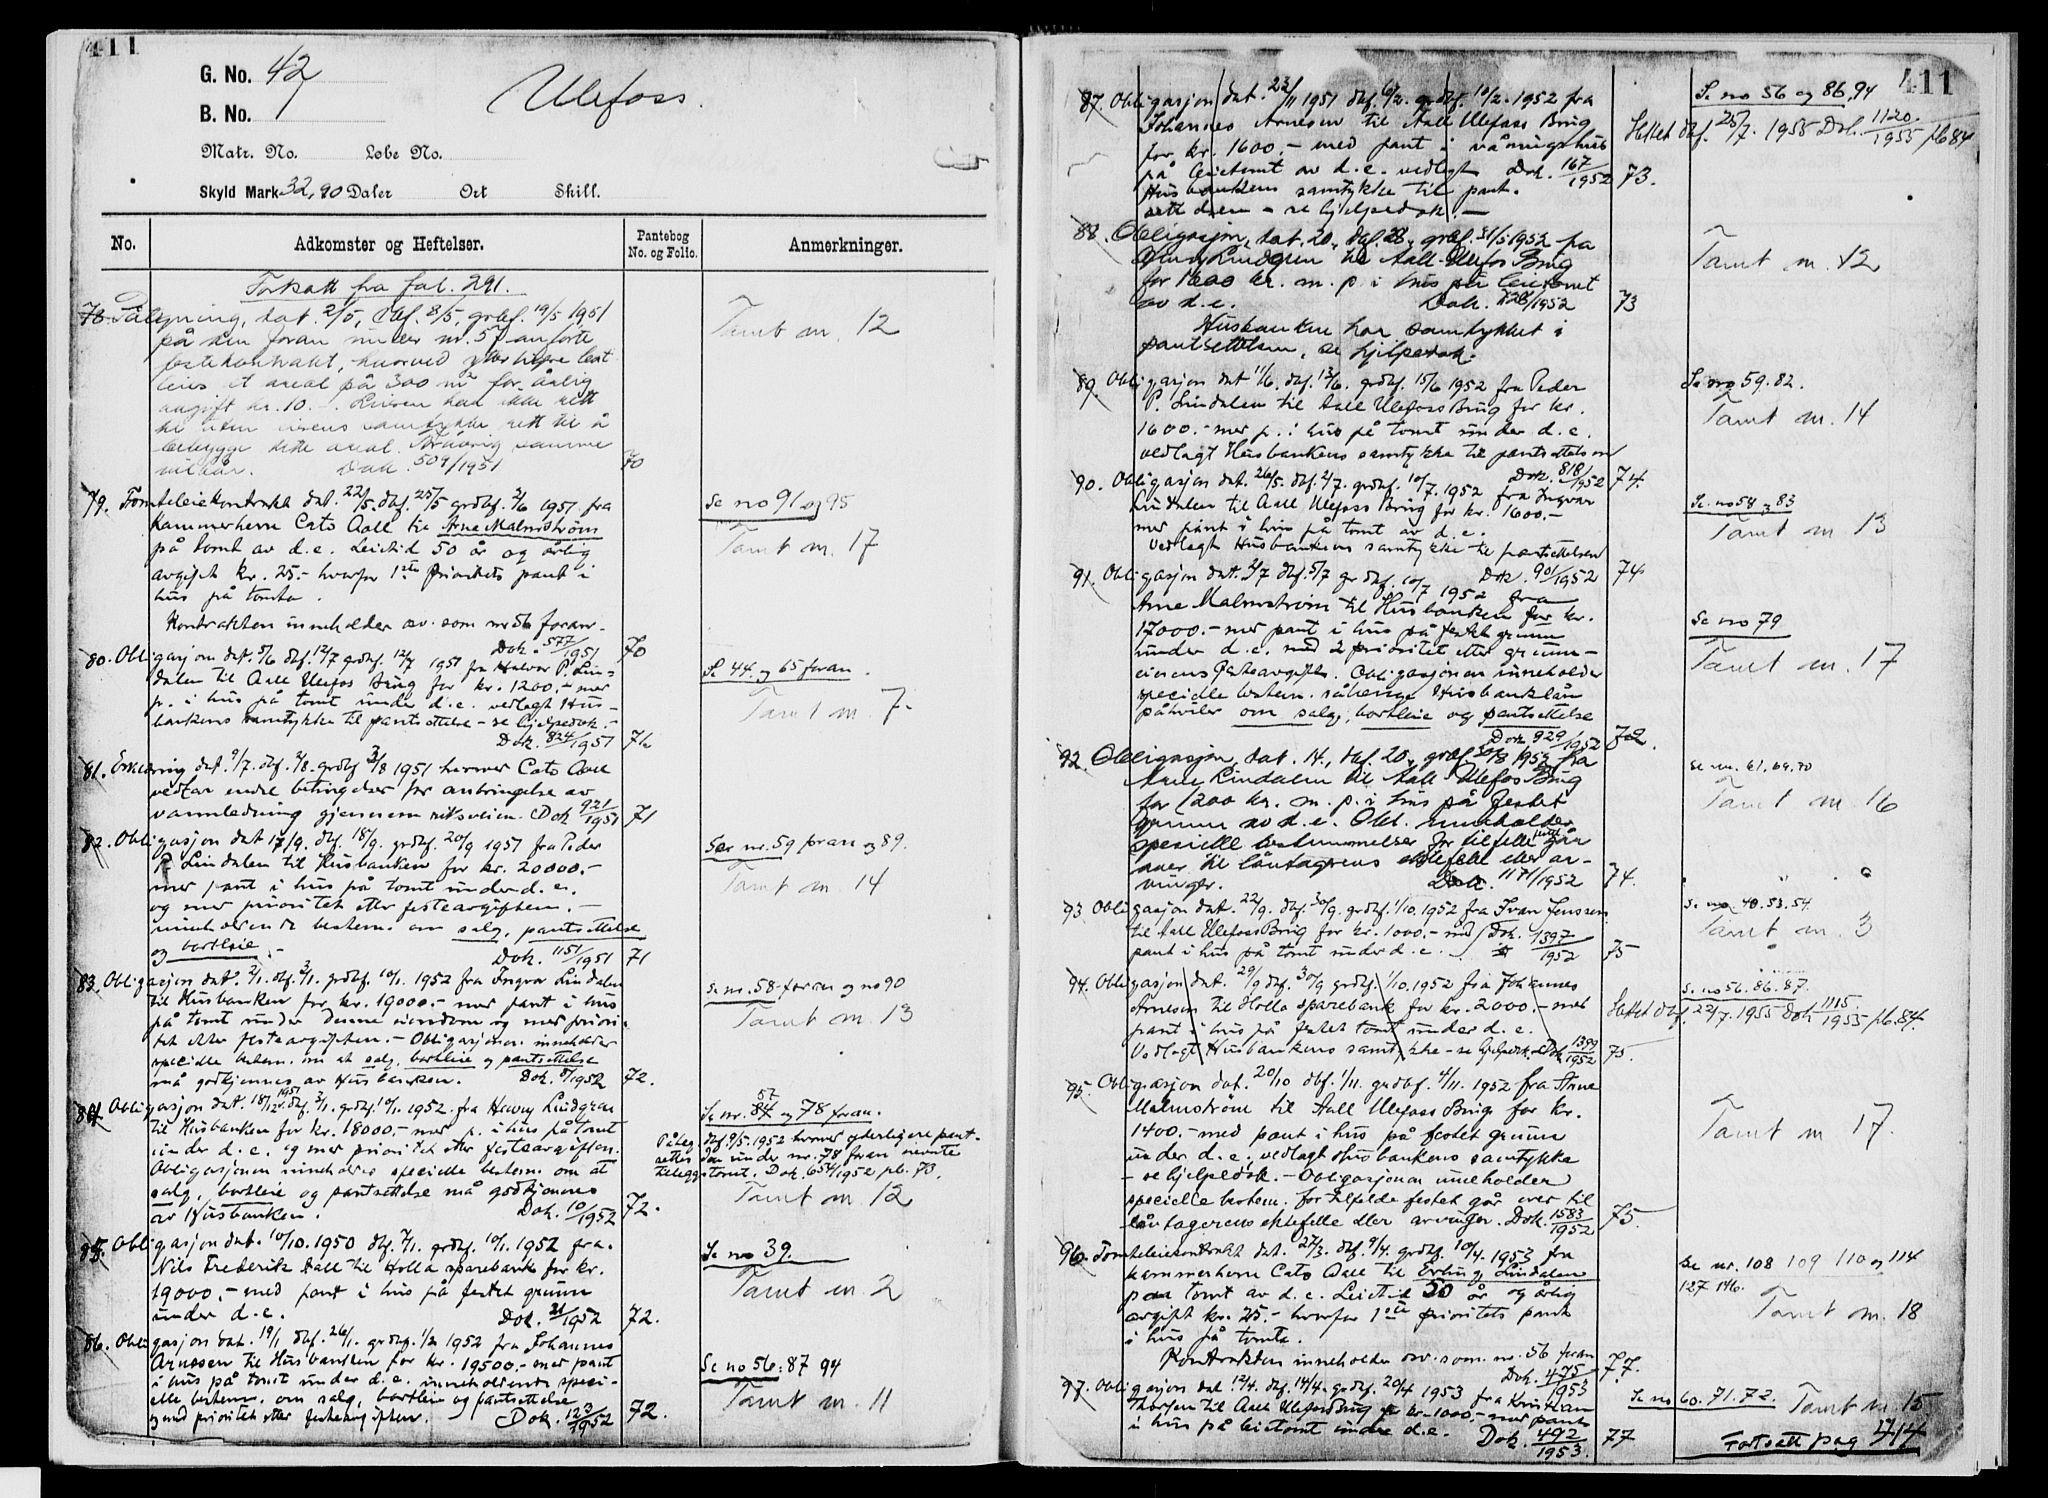 411
G. No. 42
B. No. 1
Ulefoss.
Matr. No. Løbe No.
Skyld Mark 32,90 Daler Ort Skill.
No. Adkomster og Heftelser. Pantebog No. og Folio. Anmerkninger.
Fortsatt fra fol. 291.
78 Påtegning, dat. 2/5, dbf. 8/5, grdbf. 19/5 1951
på den foran under nr. 57 anførte
festekontrakt, hvorved ytterligere bort-
leies et areal på 300 m² for årlig
avgift kr. 10.-. Leieren har ikke rett
til uten eierens samtykke rett til å
bebygge dette areal. Forøvrig samme
vilkår. Dok. 509/1951 70
Tomt nr. 12
79. Tomteleiekontrakt dat. 22/5. dbf. 25/5 grdbf. 2/6 1951 fra
Kammerherre Cato Aall til Arne Malmstrøm
på tomt av d.e. Leietid 50 år og årlig
avgift kr. 25.- hvorfor 1ste prioritets pant i
hus på tomta.
Kontrakten inneholder øv. som nr 56 foran.
Dok. 577/1951 70
Se no 91 og 95
Tomt nr. 17
80. Obligasjon dat. 5/6 dbf. 12/7 grdbf. 12/7 1951 fra Halvor P. Lin-
dalen til Aall Ulefos Brug for kr. 1200.- med
p. i hus på tomt under d.e. vedlagt Hus-
bankens samtykke til pantsettelse - se hjelpedok.-
Dok. 824/1951 71
Se 44. og 65 foran.
Tomt nr. 7.
81. Erklæring dat. 9/7. dbf. 2/8. grdbf 3/8 1951 hvorved Cato Aall
vedtar endel betingelser for anbringelse av
vannledning gjennem riksveien. Dok 921/1951 71
82. Obligasjon dat 17/9. dbf. 18/9. grdbf. 20/9 1951 fra Peder
P. Lindalen til Husbanken for kr. 20000.-
med pant i hus på tomt under d.e.
og med prioritet etter festeavgiften.-
inneholdende bestem. om salg, pantsettelse
og bortleie.- Dok. 1151/1951 71
Se nr. 59 foran og 89.
Tomt nr. 14
83. Obligasjon dat. 2/1. dbf. 3/1. grdbf. 10/1. 1952 fra Ingvar Lindalen
til Husbanken for kr. 19000.- med pant i hus
på tomt under denne eiendom og med priori-
tet etter festeavgiften.- Obligasjonen inneholder
specielle bestem. om at salg, bortleie og pantsettelse
må godkjennes av Husbanken. Dok. 8/1952 72.
Se nr. 58 foran og no 90
Tomt nr. 13
84. Obligasjon dat. 18/12 1951 dbf. 3/1. grdbf. 10/1. 1952. fra Henry Lindgren
til Husbanken for kr. 18000.- med p. i hus på tomt
under d.e. og med prioritet etter festeavgiften.
Obligasjonen inneholder specielle bestem. om at
salg, bortleie og pantsettelse må godkjennes
av Husbanken. Dok. 10/1952 72.
Se nr. 57 og 78 foran.
Påteg. dbf. 9/5. 1952 hvorved ytterligere pant-
settes den under nr. 78 foran nevnte
tilleggstomt. Dok. 654/1952 pb. 73.
Tomt nr 12
85. Obligasjon dat. 10/10. 1950 dbf. 7/1. grdbf. 10/1. 1952 fra.
Nils Frederik Aall til Holla sparebank for kr.
19000.- med pant i hus på festet grunn
under d.e. Dok. 21/1952 72.
Se no 39.
Tomt nr. 2
86. Obligasjon dat. 19/1 dbf. 26/1. grdbf. 1/2 1952 fra Johannes
Arnesen til Husbanken for kr. 19500.- med pant
i hus på tomt under d.e. inneholdende speci-
elle bestem. om salg, bortleie og pantsettelse
og med prioritet etter festeavgiften. Dok. 123/1952 72.
Se no 56. 87 94
Tomt nr. 11
411
87. Obligasjon dat. 23/11 1951 dbf. 6/2. grdbf. 10/2. 1952 fra
Johannes Arnesen til Aall Ulefoss Brug
for kr. 1600.- med pant i våningshus
på leietomt av d.e. vedlagt Dok. 167/1952 73.
Husbankens samtykke til pant-
settelsen - se hjelpedok.-
Se no 56 og 86. 94
Slettet dbf. 25/7. 1955 Dok. 1120/1955 pb 84
88. Obligasjon, dat. 20., dbf. 28., grdbf. 31/5 1952 fra
Henry Lindgren til Aall-Ulefos Brug
for 1600 kr. m. p. i hus på leietomt
av d.e. Dok. 728/1952 73
Husbanken har samtykket i
pantsettelsen, se hjelpedok.
Tomt nr. 12
89. Obligasjon dat 11/6. dbf. 13/6. grdbf. 15/6 1952 fra Peder
P. Lindalen til Aall Ulefoss Brug for kr.
1600.- med p. i hus på tomt under d.e.
vedlagt Husbankens samtykke til pantsettelsen
Dok. 818/1952 74.
Se no 59. 82.
Tomt nr. 14
90. Obligasjon dat. 26/5. dbf. 2/7. grdbf. 10/7. 1952 fra Ingvar
Lindalen til Aall Ulefoss Brug for kr. 1600.-
med pant i hus på tomt av d.e.
Vedlagt Husbankens samtykke til pantsettelsen
Dok. 901/1952 74
Se no 58 og 83
Tomt nr. 13
91. Obligasjon dat. 2/7 dbf. 5/7 grdbf. 10/7 1952 fra
Arne Malmstrøm til Husbanken for kr.
17000.- med pant i hus på festet grunn
under d.e. med 2 prioritet etter grunn-
eierens festeavgift. Obligasjonen inneholder
specielle bestem. sålenge Husbanklån
påhviler om salg, bortleie og pantsettelse
Dok 929/1952 72.
Se no 79
Tomt nr. 17
92. Obligasjon, dat. 14., dbf. 20., grdbf. 30/8 1952 fra
Lindalen til Aall Ulefos Brug
for 1200 kr. m. p. i hus på festet
grunn av d.e. Obl. inneholder
spesielle bestemmelser for tilfelle festet går
over til låntagerens ektefelle eller ar-
vinger. Dok. 1171/1952 74.
Se nr. 61. 69. 70
Tomt nr 16
93 Obligasjon dat. 22/9. dbf. 30/9. grdbf. 1/10. 1952 fra Ivar Jenssen
til Aall Ulefoss Brug for kr. 1000.- med Dok. 1397/1952 75
pant i hus på tomt under d.e.
Se no 48. 53. 54.
Tomt nr. 3
94. Obligasjon dat. 29/9 dbf. 30/9 grdbf. 1/10. 1952 fra Johannes
Arnesen til Holla sparebank for kr. 2000.- med
pant i hus på festet tomt under d.e.
Vedlagt Husbankens samtykke - se hjelpedok. Dok 1399/1952 75.
Se no 56. 86. 87.
Slettet dbf. 22/7. 1955 Dok 1115/1955 pb. 84.
95. Obligasjon dat. 20/10 dbf. 1/11. grdbf. 4/11. 1952 fra Arne
Malmstrøm til Aall Ulefoss Brug for kr.
1400.- med pant i hus på festet grunn
under d.e., vedlagt Husbankens samtykke
- se hjelpedok. - Obligasjonen inneholder
specielle bestem. for tilfelde festet går over til
låntagerens ektefelle eller arvinger. Dok. 1583/1952 75.
Tomt nr 17.
96. Tomteleiekontrakt dat. 27/3. dbf. 9/4. grdbf. 10/4. 1953 fra
kammerherre Cato Aall til Erling Lindalen
paa tomt av d.e. Leietid 50 år og årlig
avgift kr. 25.- hvorfor 1ste prioritets pant
i hus på tomta.
Kontrakten inneholder øv. som. nr. 56 foran
Dok. 475/1953 77.
Se nr. 108 109 110 og 114
127 146.
Tomt nr. 18
97. Obligasjon dat 12/4. dbf. 14/4. grdbf. 20/4 1953 fra Kristian
Thorsen til Aall Ulefoss Brug for kr. 1000.- med pant
i hus på leietomt under d.e. Dok. 492/1953. 77
Se no 60. 71. 72. Tomt nr. 15
Fortsatt pag 414